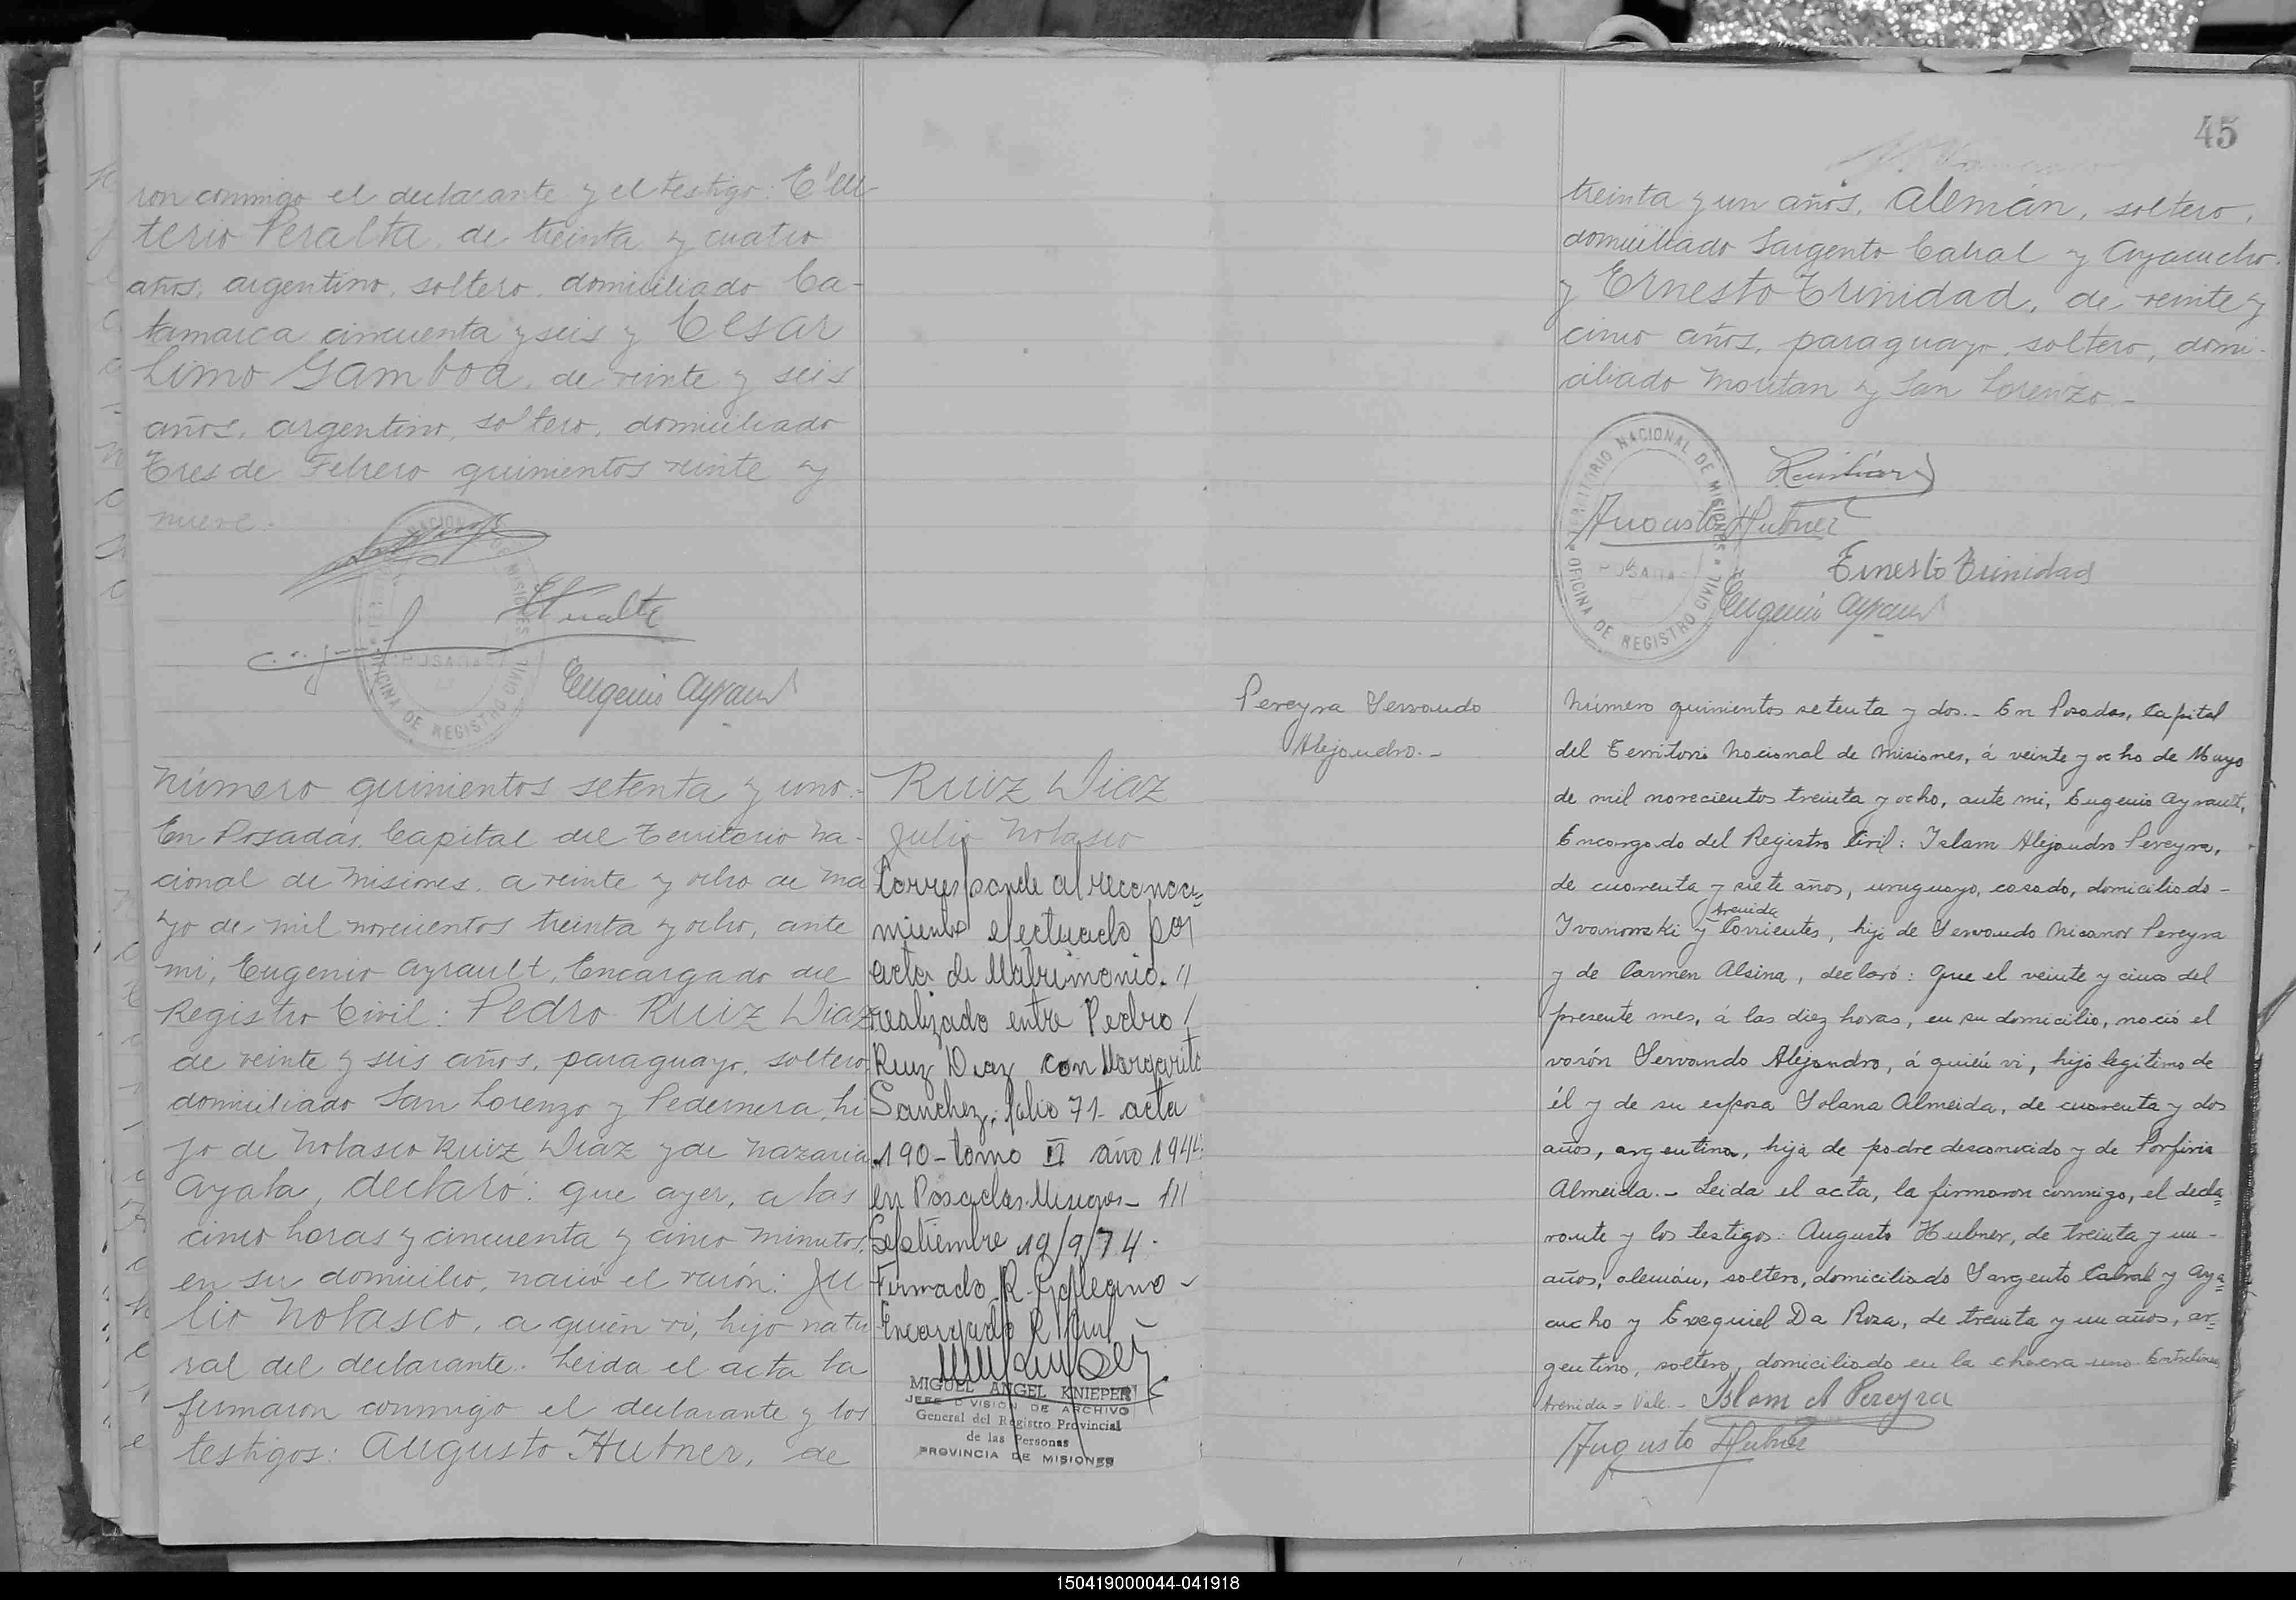 ron conmigo el declarante y el testigo: Eleu-
terio Peralta, de treinta y cuatro
años, argentino, soltero, domiciliado Ca-
tamarca cincuenta y seis y Cesar
Limo Gamboa, de veinte y seis
años, argentino, soltero, domiciliado
Tres de Febrero quinientos veinte y
nueve.
NACIONAL DE MISIONES
POSADAS
OFICINA DE REGISTRO CIVIL
Eugenio Ayrault
Número quinientos setenta y uno.-
En Posadas, Capital del Territorio Na-
cional de Misiones, a veinte y ocho de Ma
yo de mil novecientos treinta y ocho, ante
mi, Eugenio Ayrault, Encargado del
Registro Civil: Pedro Ruiz Diaz
de veinte y seis años, paraguayo, soltero,
domiciliado San Lorenzo y Pedernera, hi
jo de Nolasco Ruiz Diaz y de Nazaria
Ayala, declaró: que ayer, a las
cinco horas y cincuenta y cinco minutos,
en su domicilio, nació el varón: Ju
lio Nolasco, a quién vi, hijo natu
ral del declarante. Leida el acta la
firmaron conmigo el declarante y los
testigos: Augusto Hubner, de
Ruiz Diaz
Julio Nolasco
Corresponde al reconoci=
miento efectuado por
acta de Matrimonio. //
realizado entre Pedro /
Ruiz Diaz con Margarita
Sanchez, folio 71- acta
190- tomo II año 1944
en Posadas Misiones- ///
Septiembre 19/9/74.
Firmado R. Galeano -
Encargado R. Civil -
MIGUEL ANGEL KNIEPER
JEFE DIVISION DE ARCHIVO
General del Registro Provincial
de las Personas
PROVINCIA DE MISIONES
45
treinta y un años, alemán, soltero,
domiciliado Sargento Cabral y Ayacucho.
y Ernesto Trinidad, de veinte y
cinco años, paraguayo, soltero, domi-
ciliado Moritan y San Lorenzo -
TERRITORIO NACIONAL DE MISIONES
POSADAS
OFICINA DE REGISTRO CIVIL
Augusto Hubner
Ernesto Trinidad
Eugenio Ayrault
Pereyra Servando
Alejandro.-
Número quinientos setenta y dos.- En Posadas, Capital
del Territorio Nacional de Misiones, á veinte y ocho de Mayo
de mil novecientos treinta y ocho, ante mi, Eugenio Ayrault,
Encargado del Registro Civil: Islam Alejandro Pereyra,
de cuarenta y siete años, uruguayo, casado, domiciliado-
Avenida
Ivanowski y Corrientes, hijo de Servando Nicanor Pereyra
y de Carmen Alsina, declaró: Que el veinte y cinco del
presente mes, á las diez horas, en su domicilio, nació el
varón Servando Alejandro, á quién vi, hijo legítimo de
él y de su esposa Solana Almeida, de cuarenta y dos
años, argentina, hija de padre desconocido y de Porfiria
Almeida.- Leida el acta, la firmaron conmigo, el decla=
rante y los testigos: Augusto Hubner, de treinta y un-
años, alemán, soltero, domiciliado Sargento Cabral y Aya=
cucho y Exequiel Da Roza, de treinta y un años, ar=
gentino, soltero, domiciliado en la chacra uno. Entrelineas
Avenida = Vale.- Islam A Pereyra
Augusto Hubner
150419000044-041918